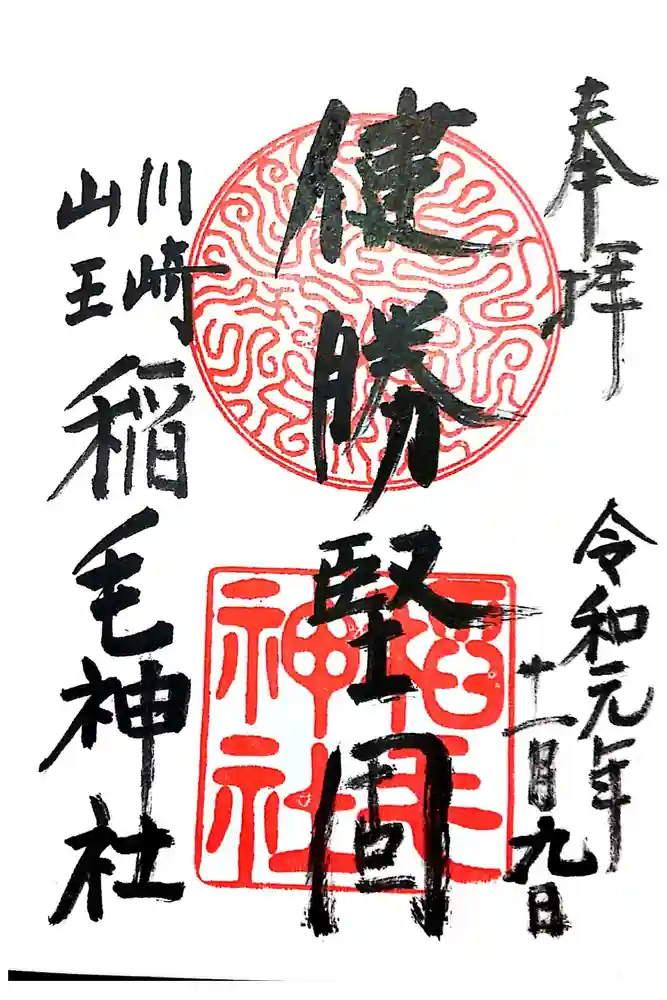 奉拝
令和元年
十一月九日
健勝堅固
稲毛
神社
川崎
山王
稲毛神社